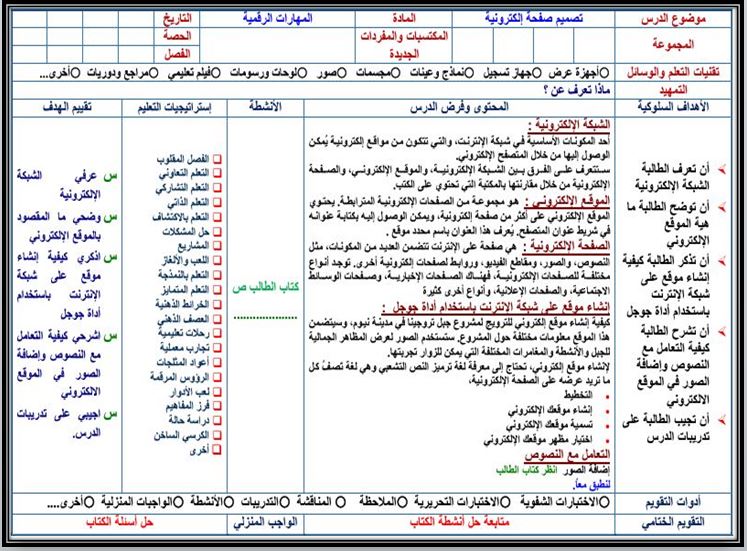 موضوع الدرس تصميم صفحة إلكترونية المادة المهارات الرقمية التاريخ
المجموعة المكتسبات والمفردات الجديدة الحصة
الفصل
تقنيات التعلم والوسائل أجهزة عرض جهاز تسجيل نماذج وعينات مجسمات صور لوحات ورسومات فيلم تعليمي مراجع ودوريات أخرى....
التمهيد ماذا تعرف عن ؟
الأهداف السلوكية المحتوى وفرض الدرس الأنشطة إستراتيجيات التعليم تقييم الهدف
أن تعرف الطالبة
الشبكة الإلكترونية
أن توضح الطالبة ما
هية الموقع
الإلكتروني
أن تذكر الطالبة كيفية
إنشاء موقع على
شبكة الإنترنت
باستخدام أداة جوجل
أن تشرح الطالبة
كيفية التعامل مع
النصوص وإضافة
الصور في الموقع
الالكتروني
أن تجيب الطالبة على
تدريبات الدرس
الشبكة الإلكترونية :
أحد المكونات الأساسية في شبكة الإنترنت، والتي تتكون من مواقع إلكترونية يُمكن
الوصول إليها من خلال المتصفح الإلكتروني.
ستتعرف على الفرق بين الشبكة الإلكترونية، والموقع الإلكتروني، والصفحة
الإلكترونية من خلال مقارنتها بالمكتبة التي تحتوي على الكتب.
الموقع الالكتروني : هو مجموعة من الصفحات الإلكترونية المترابطة. يحتوي
الموقع الإلكتروني على أكثر من صفحة إلكترونية، ويمكن الوصول اليه بكتابة عنوانه
في شريط عنوان المتصفح. يُعرف هذا العنوان باسم محدد موقع .
الصفحة الإلكترونية : هي صفحة على الإنترنت تتضمن العديد من المكونات، مثل
النصوص، والصور، ومقاطع الفيديو، وروابط لصفحات إلكترونية أخرى. توجد أنواع
مختلفة للصفحات الإلكترونية، فهناك الصفحات الإخبارية، وصفحات الوسائط
الاجتماعية، والصفحات الإعلانية، وأنواع أخرى كثيرة
إنشاء موقع على شبكة الانترنت باستخدام أداة جوجل :
كيفية إنشاء موقع إلكتروني للترويج لمشروع جبل تروجينا في مدينة نيوم، وسيتضمن
هذا الموقع معلومات مختلفة حول المشروع. ستستخدم الصور لعرض المظاهر الجمالية
للجبل والأنشطة والمغامرات المختلفة التي يمكن للزوار تجربتها.
لإنشاء موقع إلكتروني، تحتاج إلى معرفة لغة ترميز النص التشعبي وهي لغة تصفُ كل
ما تريد عرضه على الصفحة الإلكترونية،
التخطيط
إنشاء موقعك الإلكتروني
تسمية موقعك الإلكتروني
اختيار مظهر موقعك الإلكتروني
التعامل مع النصوص
إضافة الصور انظر كتاب الطالب
لنطبق معاً.
كتاب الطالب ص
....................
الفصل المقلوب
التعلم التعاوني
التعلم التشاركي
التعلم الذاتي
التعلم بالاكتشاف
حل المشكلات
المشاريع
اللعب والألغاز
التعلم بالنمذجة
التعلم المتمايز
الخرائط الذهنية
العصف الذهني
رحلات تعليمية
تجارب معملية
أعواد المثلجات
الرؤوس المرقمة
لعب الأدوار
فرز المفاهيم
دراسة حالة
الكرسي الساخن
أخرى
س عرفي الشبكة
الإلكترونية
س وضحي ما المقصود
بالموقع الإلكتروني
س اذكري كيفية إنشاء
موقع على شبكة
الإنترنت باستخدام
أداة جوجل
س اشرحي كيفية التعامل
مع النصوص وإضافة
الصور في الموقع
الالكتروني
س اجيبي على تدريبات
الدرس.
أدوات التقويم الاختبارات الشفوية الاختبارات التحريرية الملاحظة المناقشة التدريبات الأنشطة الواجبات المنزلية أخرى.....
التقويم الختامي متابعة حل أنشطة الكتاب الواجب المنزلي حل أسئلة الكتاب